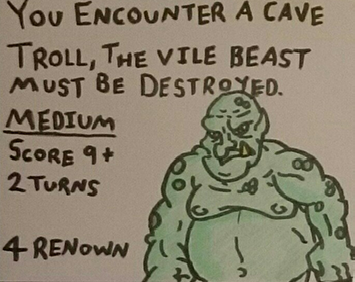 You Encounter a Cave
Troll, The vile beast
must be Destroyed.
Medium
Score 9+
2 Turns
4 Renown